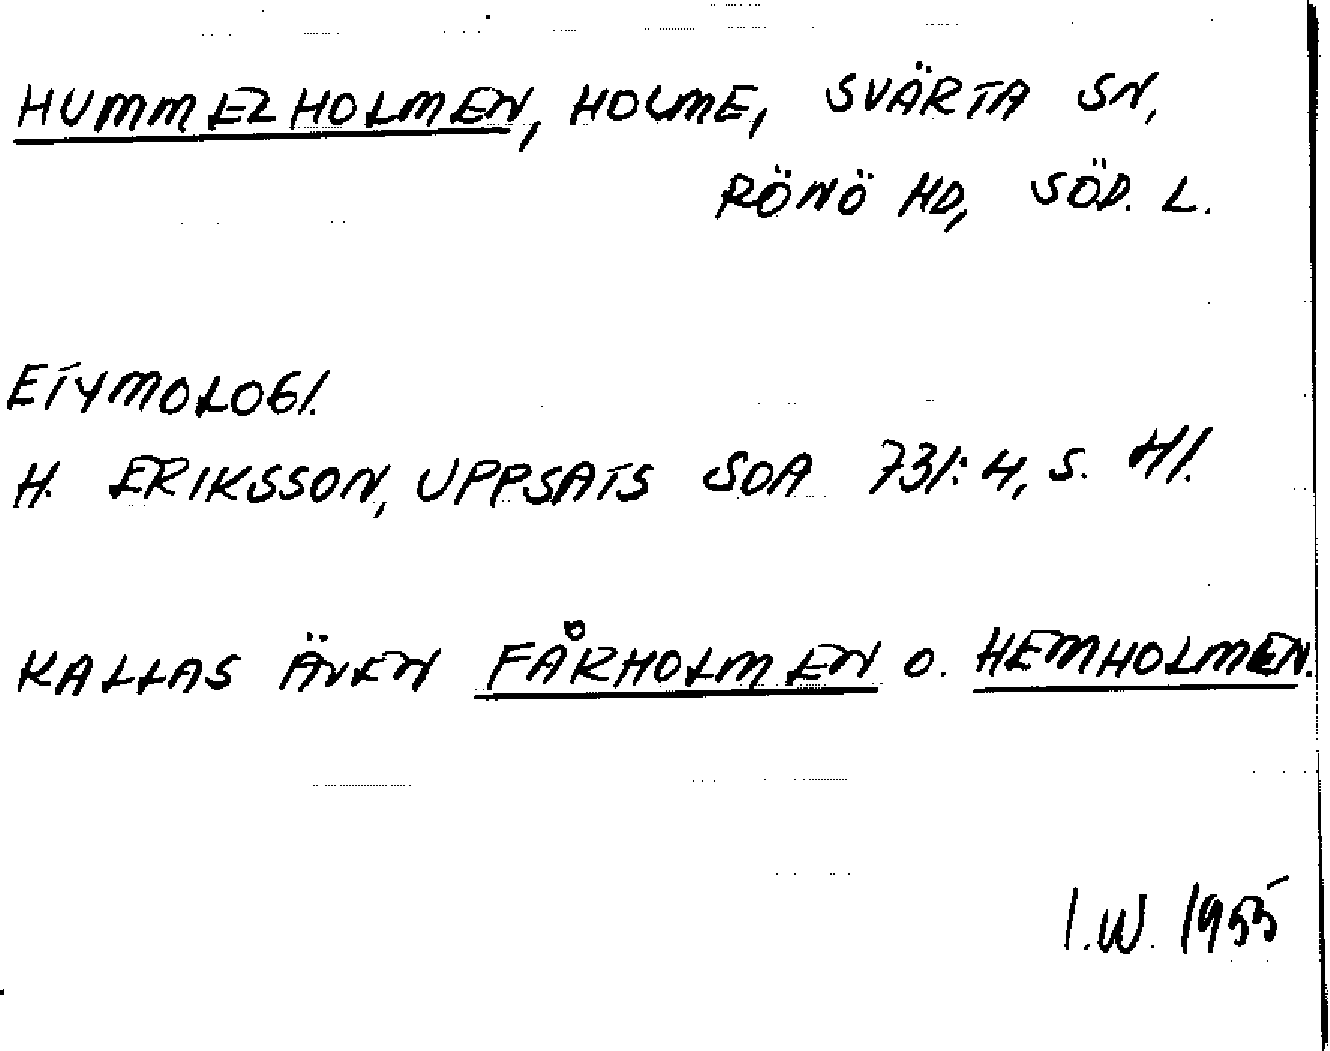 HUMMELHOLMEN, HOLME, SVÄRTA SN,
RÖNÖ HD, SÖD. L.
ETYMOLOGI.
H. ERIKSSON, UPPSATS SOA 731:4, S. 41.
KALLAS ÄVEN FÅRHOLMEN O. HEMHOLMEN.
I.W. 1955